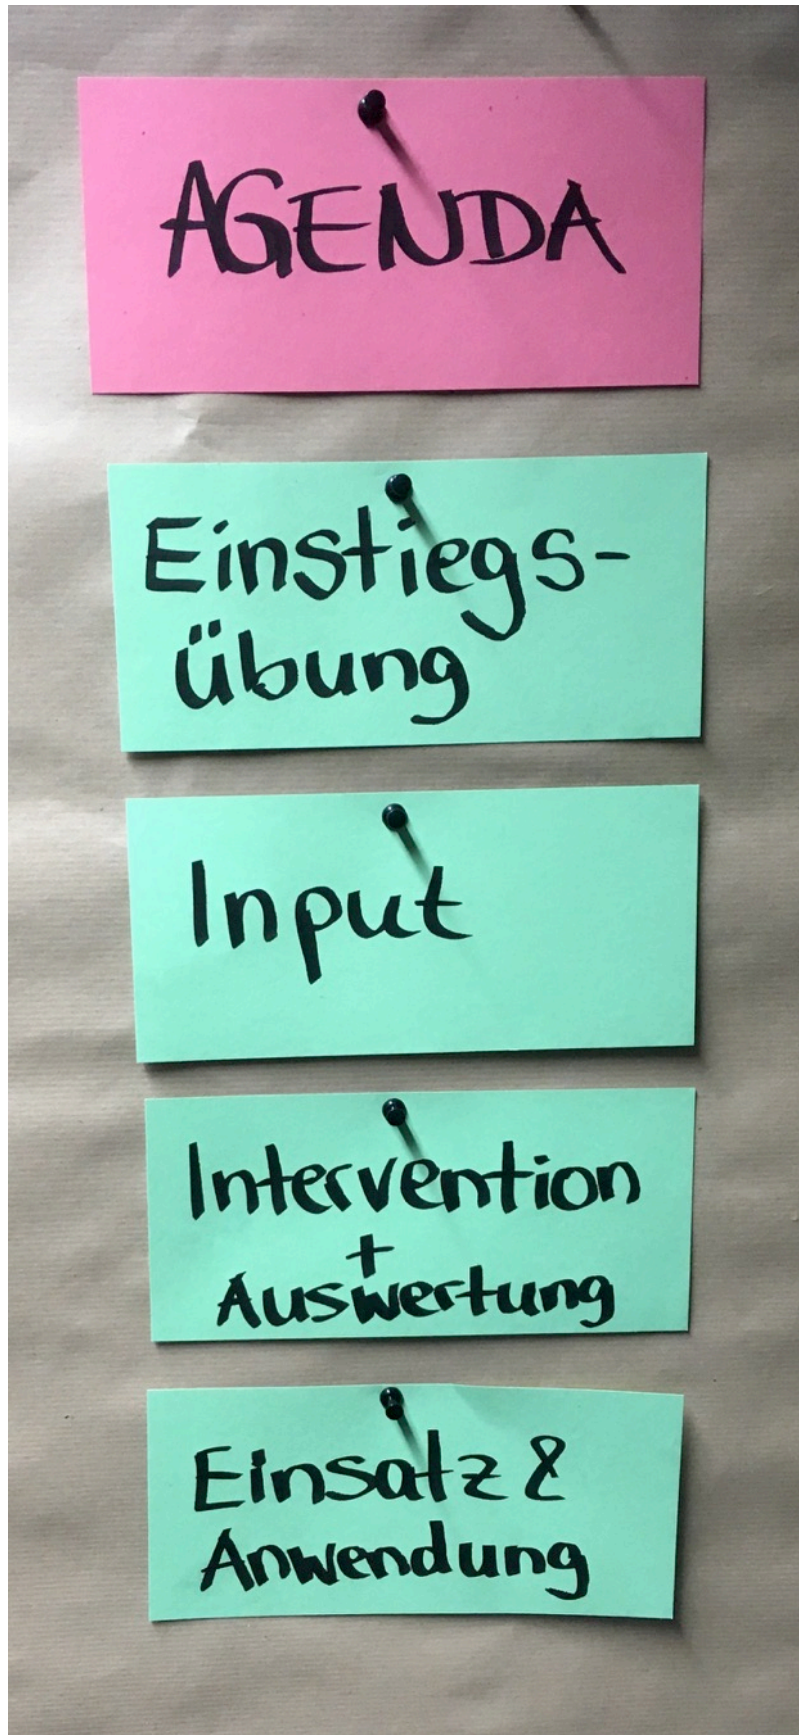 AGENDA
Einstiegs-
Übung
Input
Intervention
+
Auswertung
Einsatz &
Anwendung